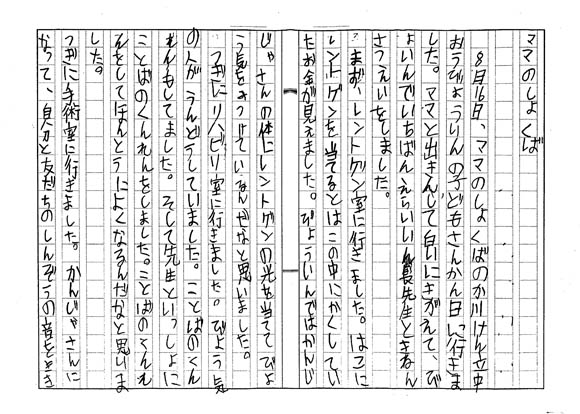 ママのしょくば
8月16日、ママのしょくばのか川けん立中
おうびょういんの子どもさんかん日に行きま
した。ママと出きんして白いふくにきがえて、び
ょういんでいちばんえらいいん長先生ときねん
さつえいをしました。
まず、レントゲン室に行きました。はこに
レントゲンを当てるとはこの中にかくしてい
たお金が見えました。びょういんではかんじ
ゃさんの体にレントゲンの光を当ててびょ
う気を見つけているんだなと思いました。
つぎにリハビリ室に行きました。びょう気
の人がうんどうしていました。ことばのくん
れんもしてました。そして先生といっしょに
ことばのくんれんをしました。ことばのくんれ
んをしてほんとうによくなるんだなと思いま
した。
つぎに手術室に行きました。かんじゃさんに
なって、自分と友だちのしんぞうの音をきき